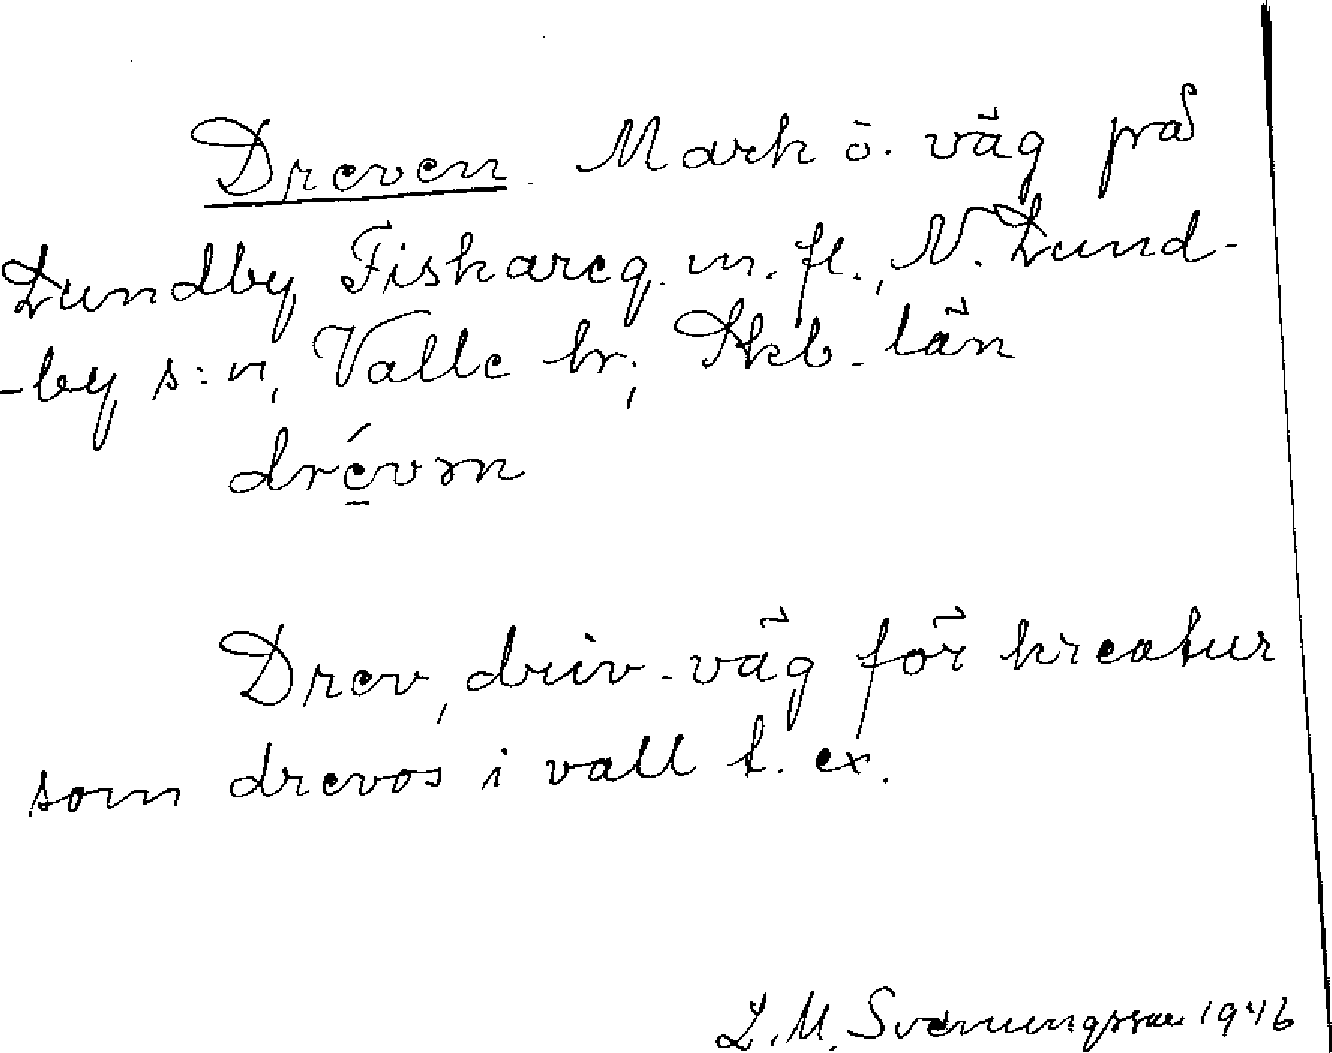 Dreven. Mark o. väg på
Lundby Fiskareg. m. fl., N. Lund-
-by s:n, Valle hr; Skb. län
drévm

Drev, driv-väg för kreatur
som drevos i vall t. ex.
L. M. Svenungsson 1946